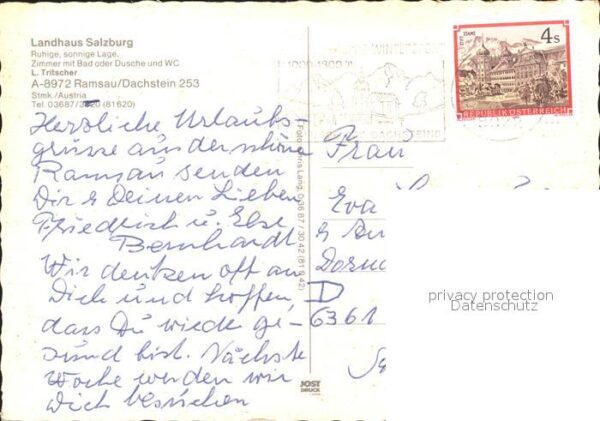 Landhaus Salzburg
Ruhige, sonnige Lage,
Zimmer mit Bad oder Dusche und WC
L. Tritscher
A-8972 Ramsau/Dachstein 253
Stmk./Austria
Tel. 03687/2820 (81620)
Herzliche Urlaubs-
grüsse aus der schönen
Ramsau senden
Dir & Deinen Lieben
Friedrich u. Else
Bernhardt
Wir denken oft an
Dich und hoffen,
dass Du wieder ge-
sund bist. Nächste
Woche werden wir
Dich besuchen
JOST
DRUCK
4 S
STIFT STAMS
REPUBLIK ÖSTERREICH
Frau
Eva
&
D
6361
privacy protection
Datenschutz